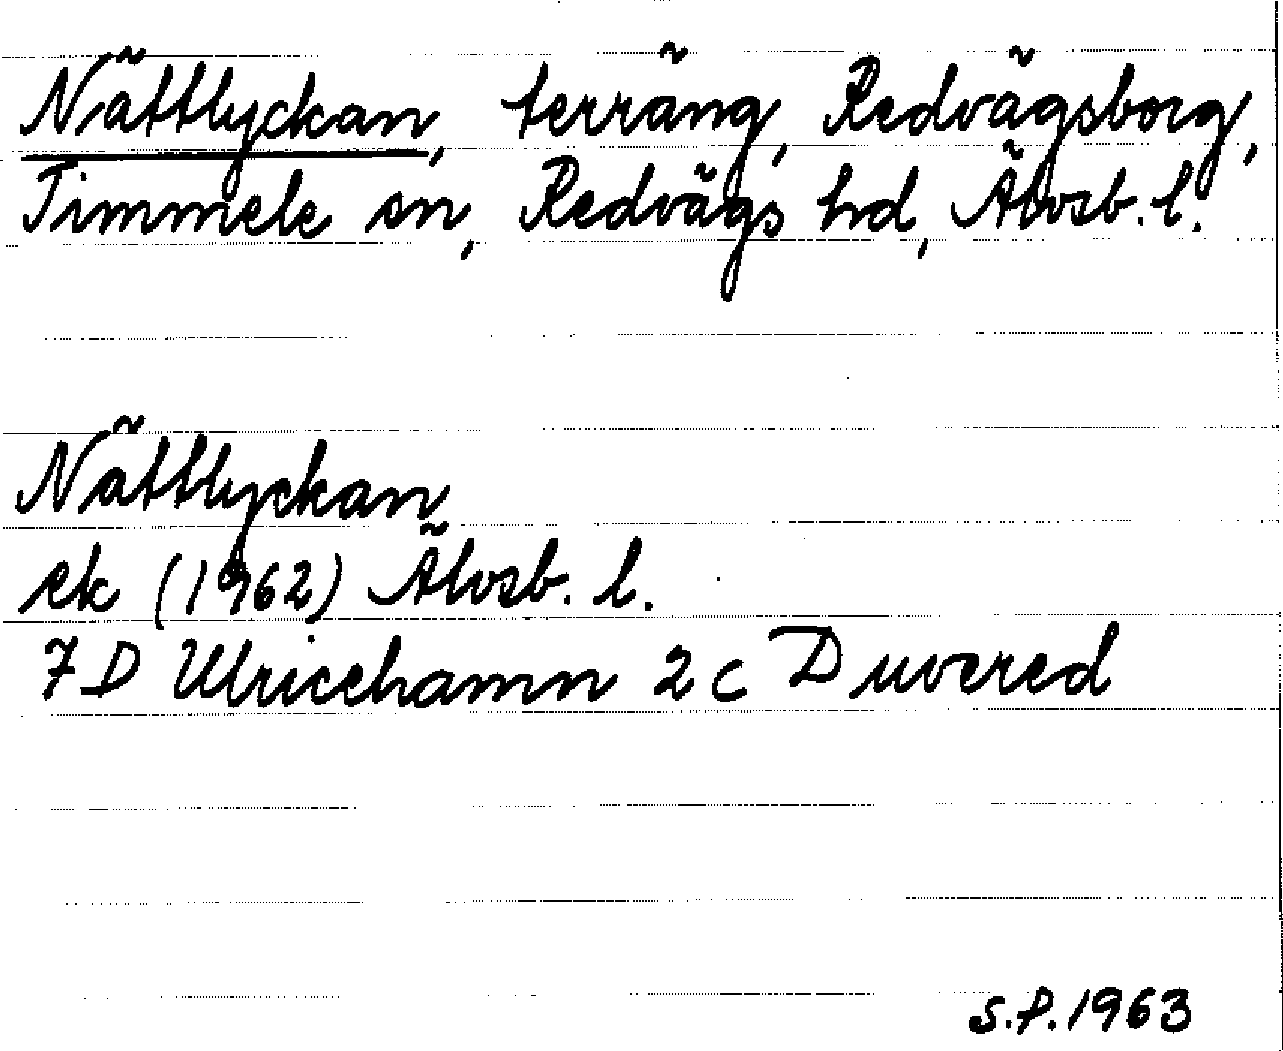 Nättlyckan, terräng, Redvägsborg,
Timmele sn, Redvägs hd, Älvsb. l.
Nättlyckan
ek (1962) Älvsb. l.
7D Ulricehamn 2c Duvered
S.P. 1963